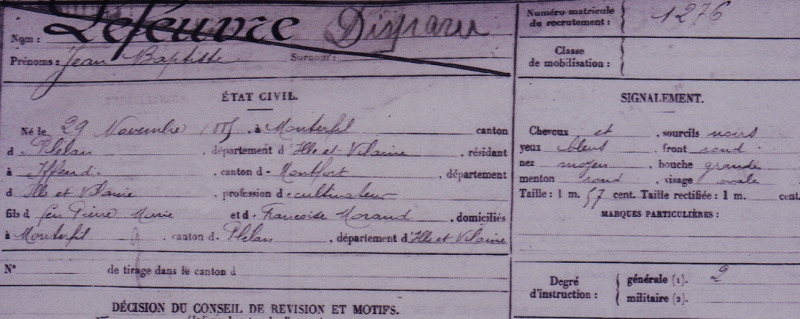 Nom : Lefeuvre Disparu
Prénoms : Jean Baptiste Surnom :
ÉTAT CIVIL.
Né le 29 Novembre à Monterfil canton
d Plélan , département d'Ille et Vilaine , résidant
à Iffendic , canton d Montfort , département
d Ille et Vilaine , profession d cultivateur
fils d feu Pierre Marie et d Françoise Morand , domiciliés
à Monterfil , canton d Plélan , département d'Ille et Vilaine
N° de tirage dans le canton d
DÉCISION DU CONSEIL DE REVISION ET MOTIFS.
Numéro matricule
du recrutement : 1276
Classe
de mobilisation :
SIGNALEMENT.
Cheveux et , sourcils noirs
yeux bleus , front rond
nez moyen , bouche grande
menton rond , visage ovale
Taille : 1 m. 57 cent. Taille rectifiée : 1 m. cent.
MARQUES PARTICULIÈRES :
Degré
d'instruction :
générale (1). 2
militaire (2).